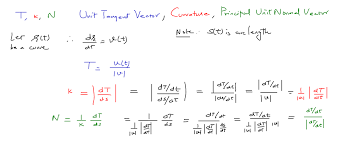 T, κ, N Unit Tangent Vector, Curvature, Principal Unit Normal Vector
Let s(t) be a curve ∴ ds/dt = v(t) Note: s(t) is arc length
T = v(t)/|v|
κ = |dT/ds| = |(dT/dt)/(ds/dt)| = |dT/dt|/|ds/dt| = |dT/dt|/|v| = 1/|v| |dT/dt|
N = 1/κ dT/ds = 1/(1/|v| |dT/dt|) dT/ds = (dT/dt)/(1/|v| |dT/dt| ds/dt) = (dT/dt)/(1/|v| |dT/dt| |v|) = (dT/dt)/|dT/dt|